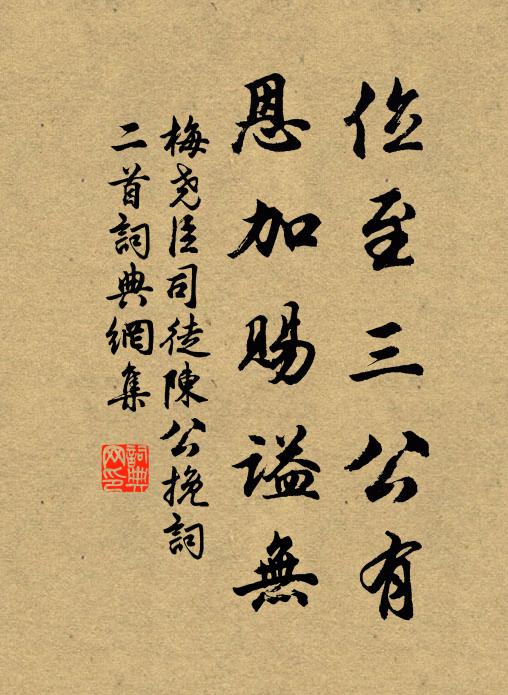 位至三公有
恩加賜謚無
梅堯臣司徒陳公挽詞
二首詞典網集
詞典网印